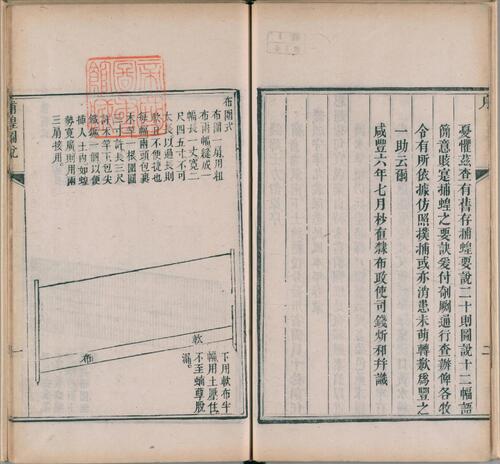 憂懼茲查有舊存捕蝗要說二十則圖說十二幅語
簡意賅寔捕蝗之要訣爰付剞劂通行查辦俾各牧
令有所依據仿照撲捕或亦消患未萌轉歉為豐之
一助云爾
咸豐六年七月杪直隸布政使司錢炘和并識
捕蝗圖說
布圍式
布圍一扇用粗
布兩幅縫成一
幅長一丈寬二
尺四五寸不可
太長以過長則
軟且不使捷也
每幅兩頭包裹
木竿一根圍圓
三寸許長三尺
許木竿下包尖
鐵鑽一個以便
插入土內如蝗
勢寬廣則用兩
三扇接用
軟
布
下用軟布半
幅用土壓住
不至蝻孽脫
漏